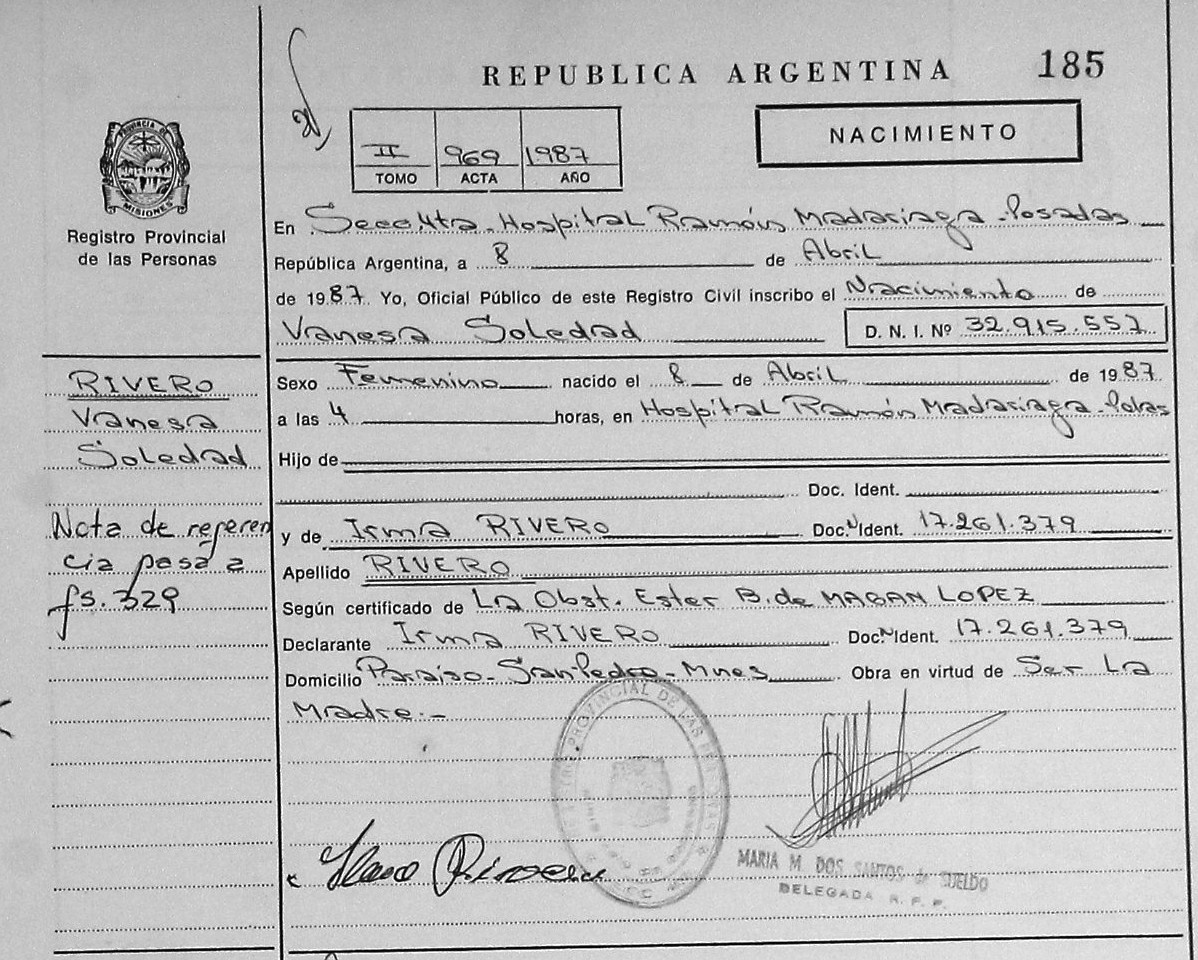 REPUBLICA ARGENTINA
185
II 969 1987
TOMO ACTA AÑO
NACIMIENTO
PROVINCIA DE
MISIONES
Registro Provincial
de las Personas
En Secc.4ta. Hospital Ramón Madariaga - Posadas
República Argentina, a 8 de Abril
de 1987. Yo, Oficial Público de este Registro Civil inscribo el Nacimiento de
Vanesa Soledad D. N. I. Nº 32.915.557
RIVERO
Vanesa
Soledad
Nota de referen
cia pasa a
fs. 329
Sexo Femenino nacido el 8 de Abril de 1987
a las 4 horas, en Hospital Ramón Madariaga - Pdas
Hijo de
Doc. Ident.
y de Irma RIVERO Doc. Ident. 17.261.379
Apellido RIVERO
Según certificado de La Obst. Ester B. de MAGAN LOPEZ
Declarante Irma RIVERO Doc. Ident. 17.261.379
Domicilio Paraiso - San Pedro - Mnes Obra en virtud de Ser La
Madre.-
PROVINCIAL DE LAS PERSONAS
MARIA M. DOS SANTOS de SUELDO
DELEGADA R. P. P.